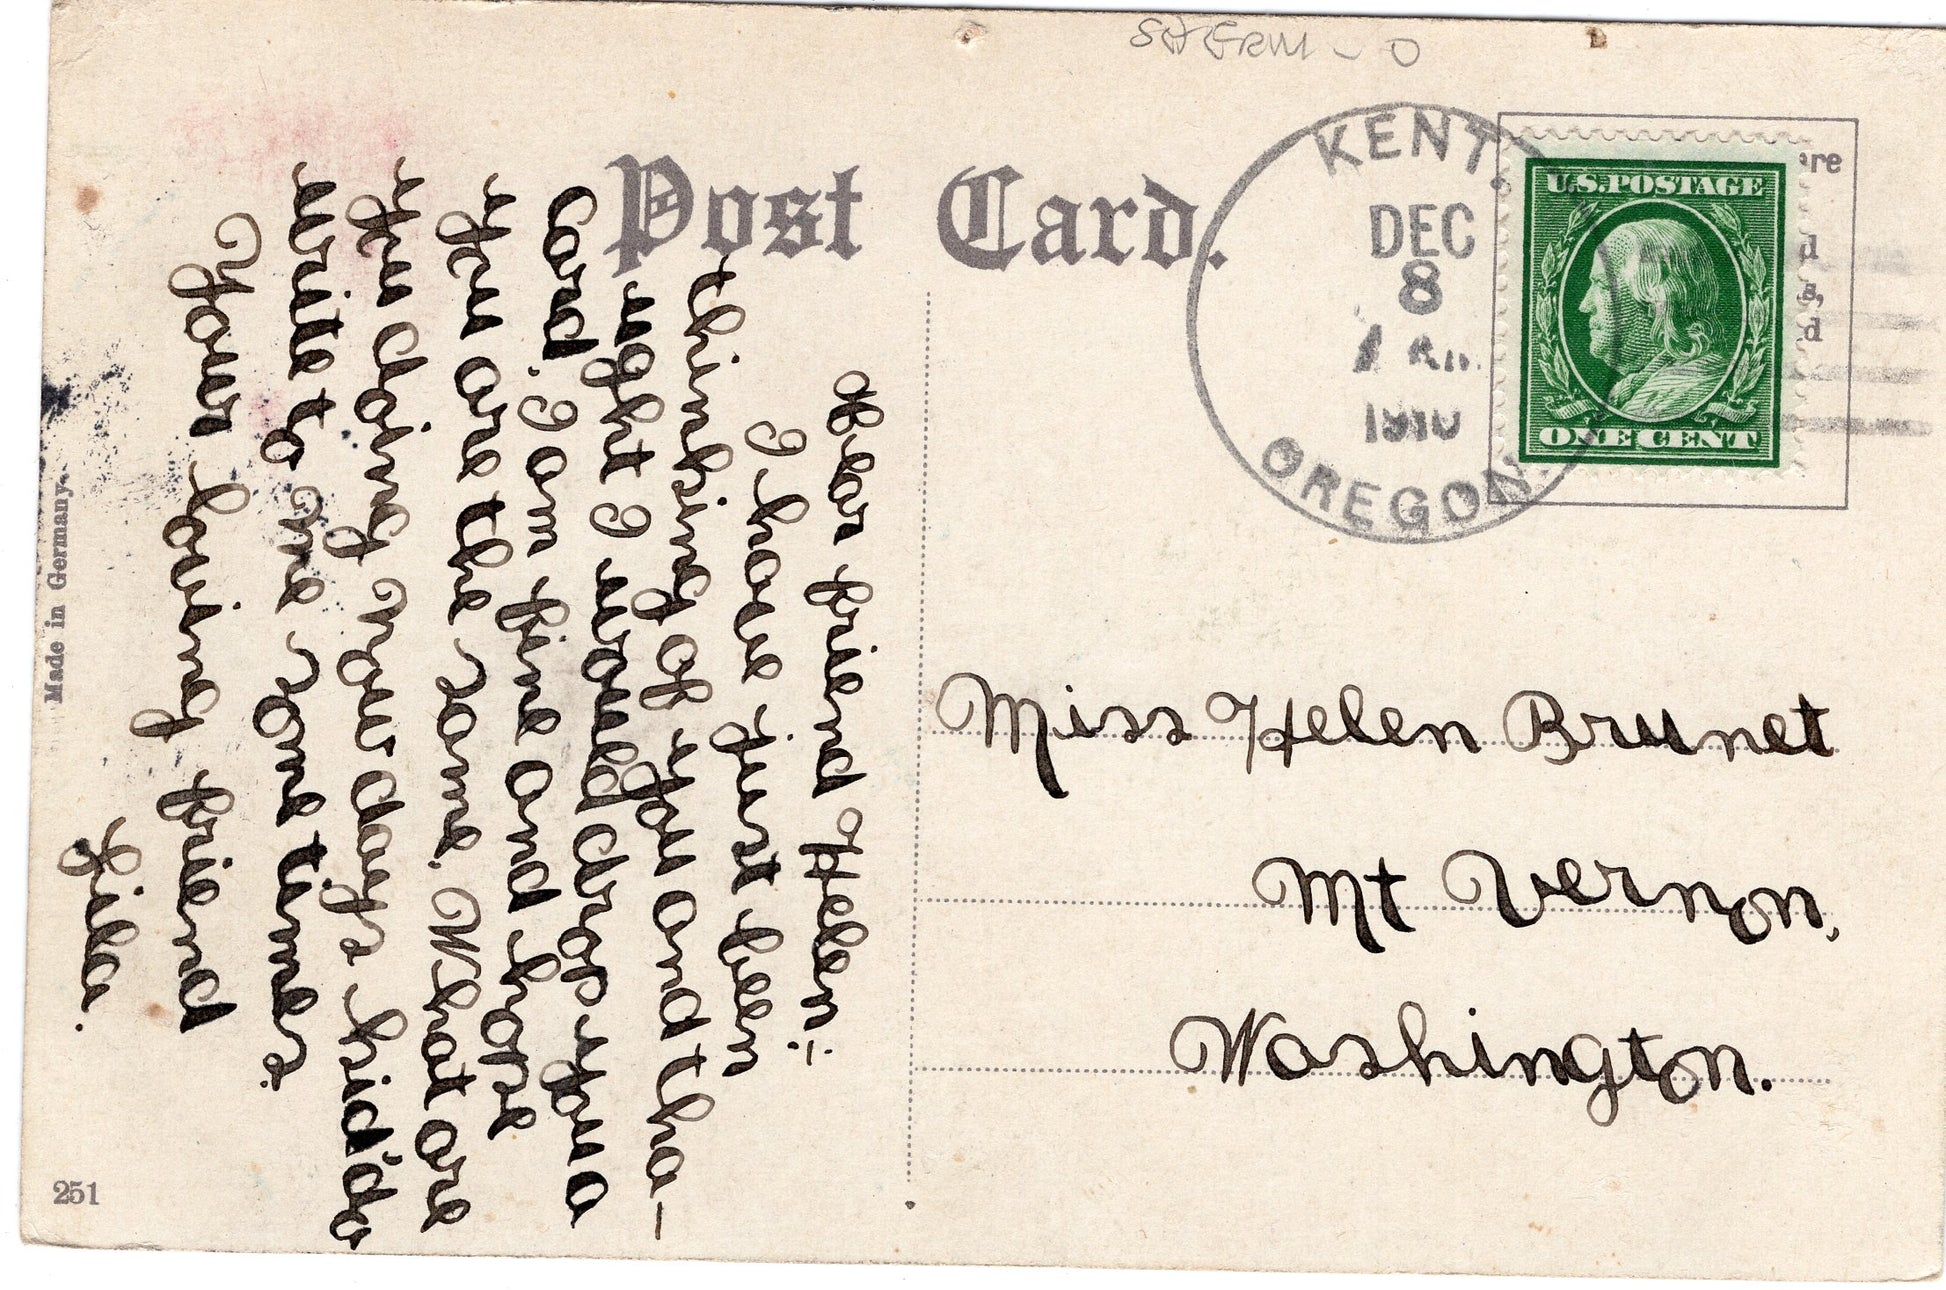 SHERM - O
Post Card.
KENT.
DEC
8
1910
OREGON.
U.S.POSTAGE
ONE CENT
Dear friend Helen:-
I have just been
thinking of you and tho-
ught I would drop you a
card. I am fine and hope
you are the same. What are
you doing now days kiddo
write to me sometimes.
Your loving friend
Miss Helen Brunet
Mt Vernon,
Washington.
Made in Germany.
251